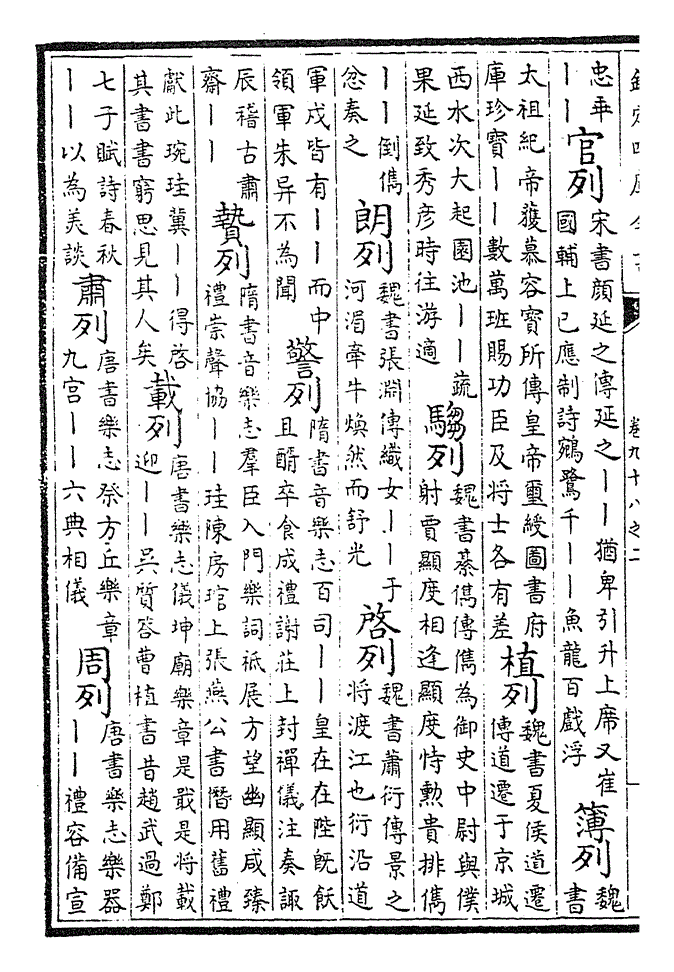 欽定四庫全書
卷九十八之二
忠平
――
官列
宋書顔延之傳延之――猶卑引升上席又崔
國輔上已應制詩鵷鷺千――魚龍百戲浮
簿列
魏
書
太祖紀帝獲慕容寶所傳皇帝璽綬圖書府
庫珍寶――數萬班賜功臣及将士各有差
植列
魏書夏侯道遷
傳道遷于京城
西水次大起園池――蔬
果延致秀彦時往游適
騶列
魏書綦儁傳儁為御史中尉與僕
射賈顯度相逢顯度恃勲貴排儁
――倒儁
忿奏之
朗列
魏書張淵傳織女――于
河湄牽牛煥然而舒光
啓列
魏書蕭衍傳景之
将渡江也衍沿道
軍戍皆有――而中
領軍朱异不為聞
警列
隋書音樂志百司――皇在在陛旣飫
且酳卒食成禮謝莊上封禪儀注奏諏
辰稽古肅
齋――
贄列
隋書音樂志羣臣入門樂詞祗展方望幽顯咸臻
禮崇聲協――珪陳房琯上張燕公書僭用舊禮
獻此琬珪冀――得啓
其書書窮思見其人矣
載列
唐書樂志儀坤廟樂章是戢是将載
迎――吳質答曹植書昔趙武過鄭
七子賦詩春秋
――以為美談
肅列
唐書樂志祭方丘樂章
九宫――六典相儀
周列
唐書樂志樂器
――禮容備宣